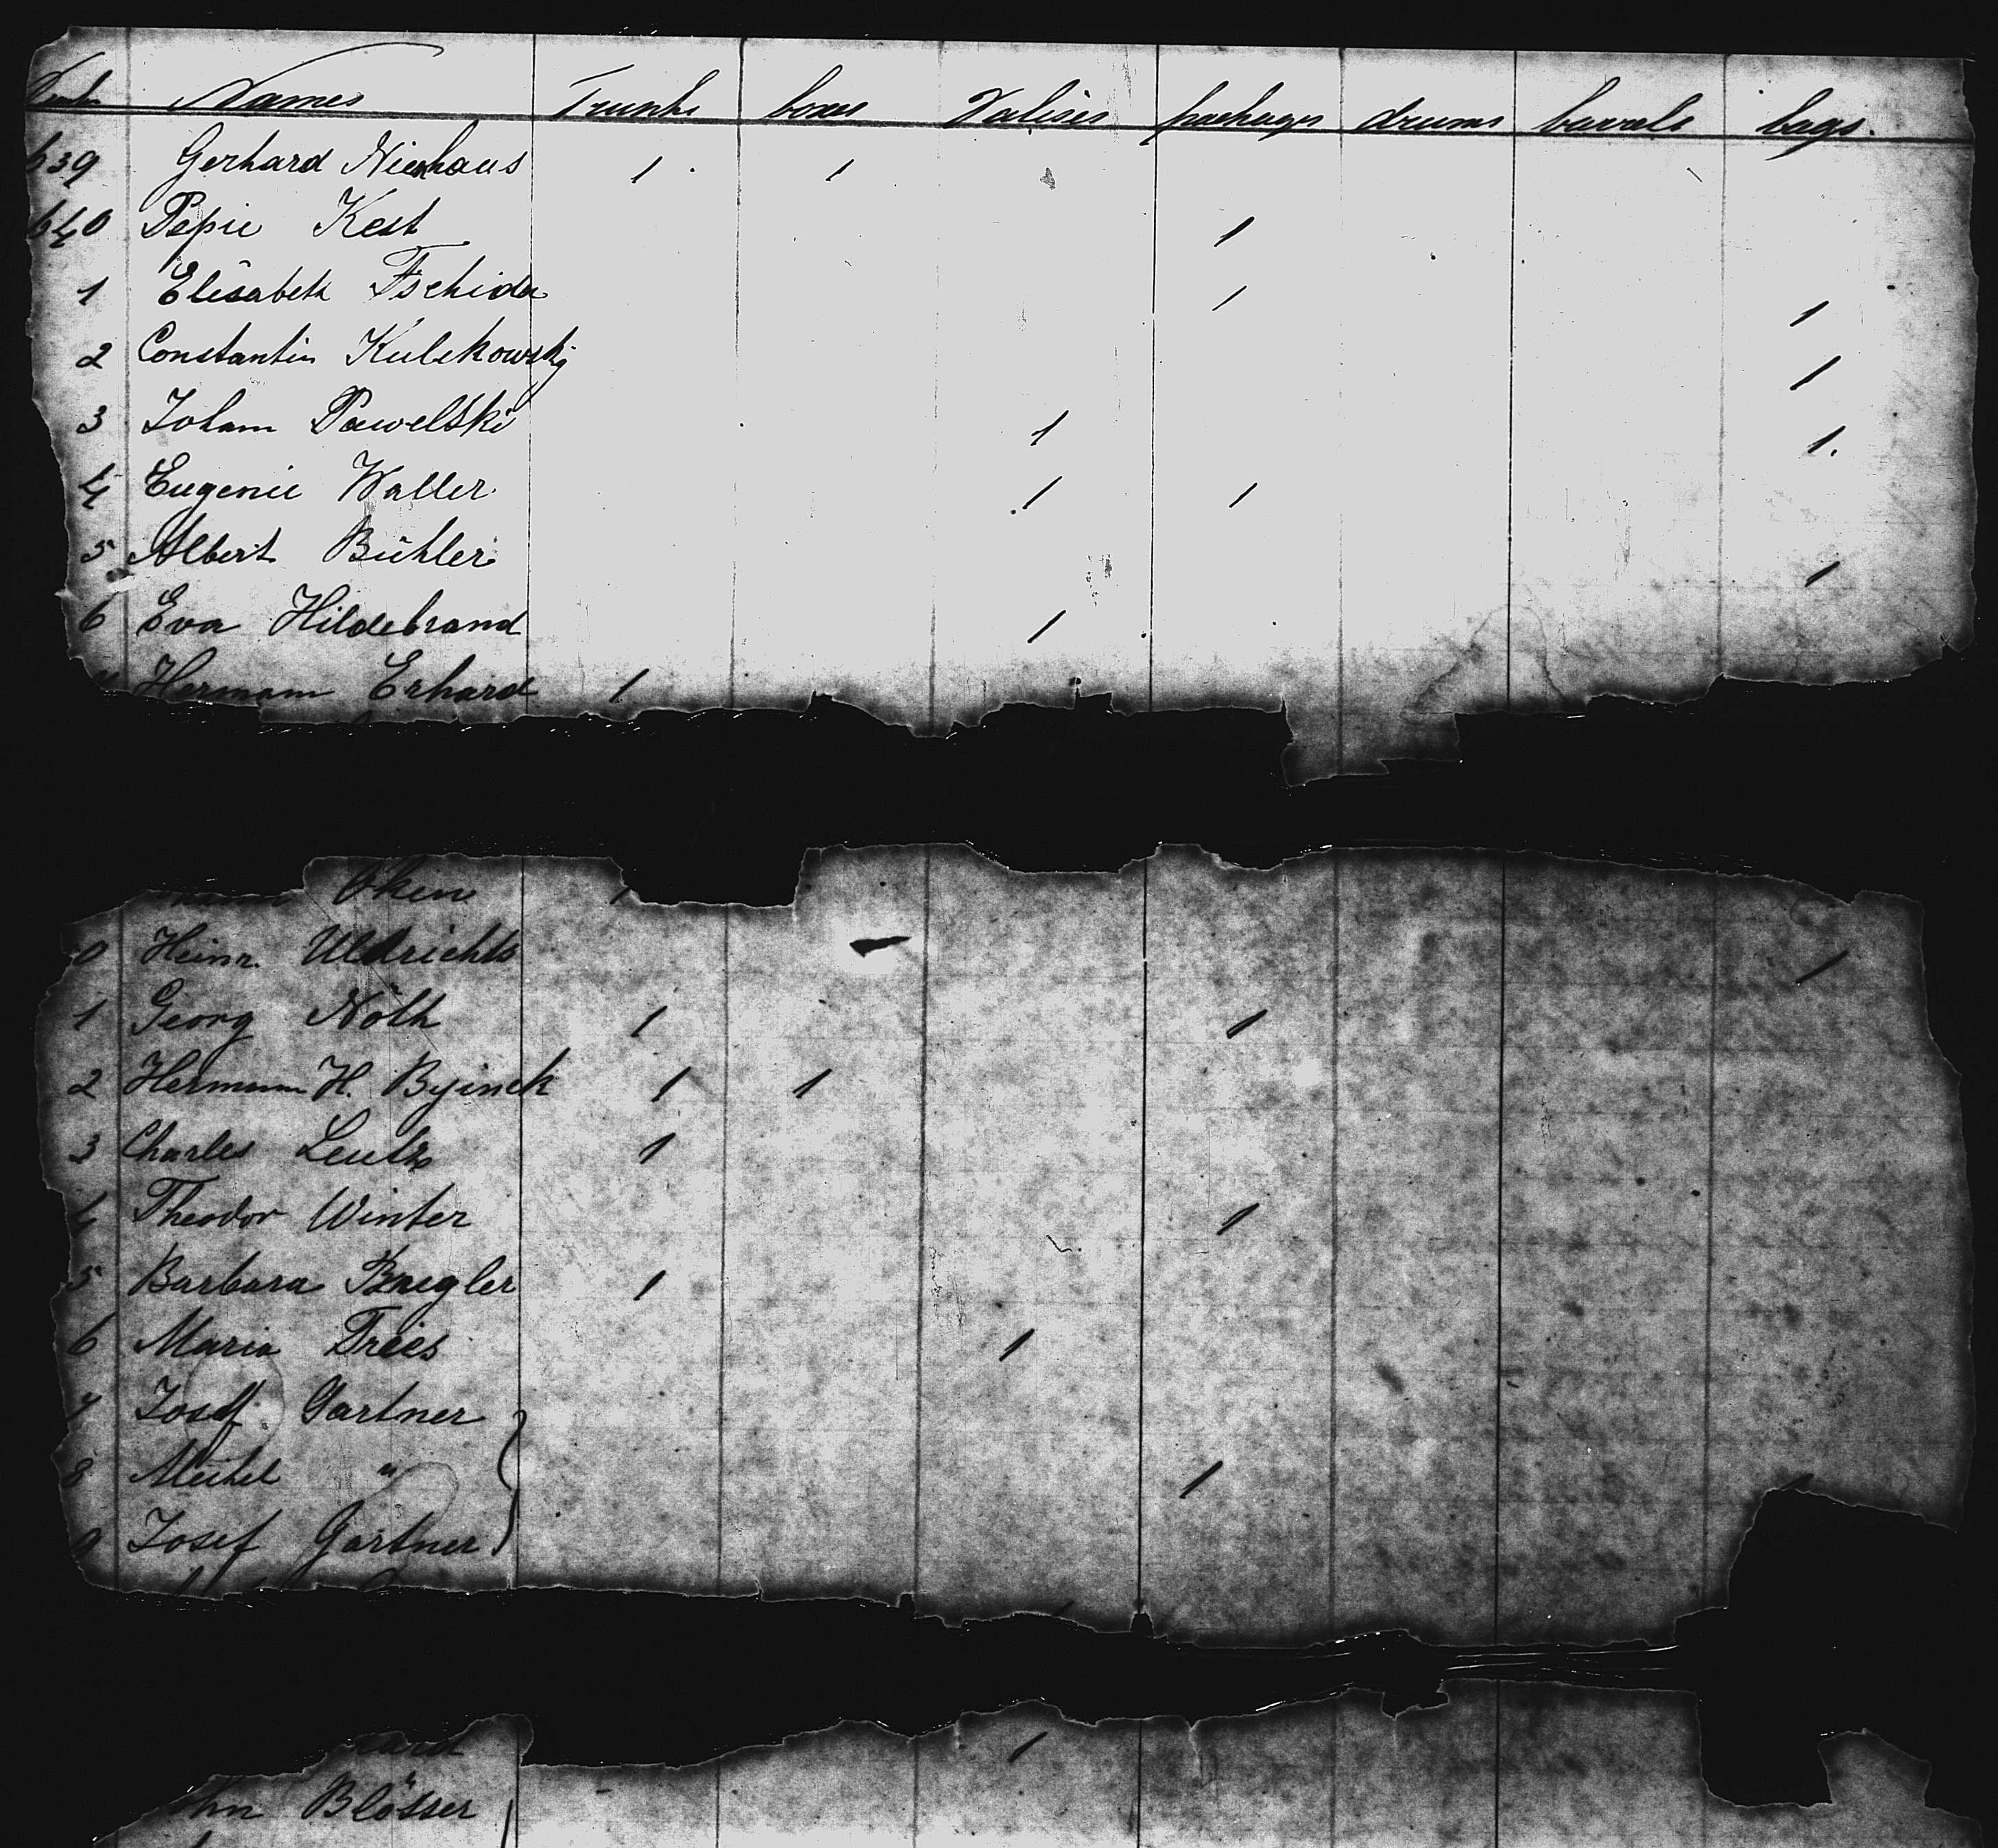 Number Names Trunks boxes Valises packages drums barrels bags.
639 Gerhard Nienhaus 1 1
640 Pepie Kest 1
1 Elisabeth Tschida 1
2 Constantin Kulzkowsky 1
3 Johann Pawelski 1 1
4 Eugenie Waller 1 1 1.
5 Albert Bühler
6 Eva Hildebrand 1 1
Hermann Erhard 1
1
0 Heinr. Uldrichts 1
1 Georg Nöth 1 1
2 Hermann H. Byinck 1 1
3 Charles Leutz 1
4 Theodor Winter 1
5 Barbara 1
6 Maria Tries 1
7 Josef Gartner
8 " 1
9 Josef Gartner
1
Blösser